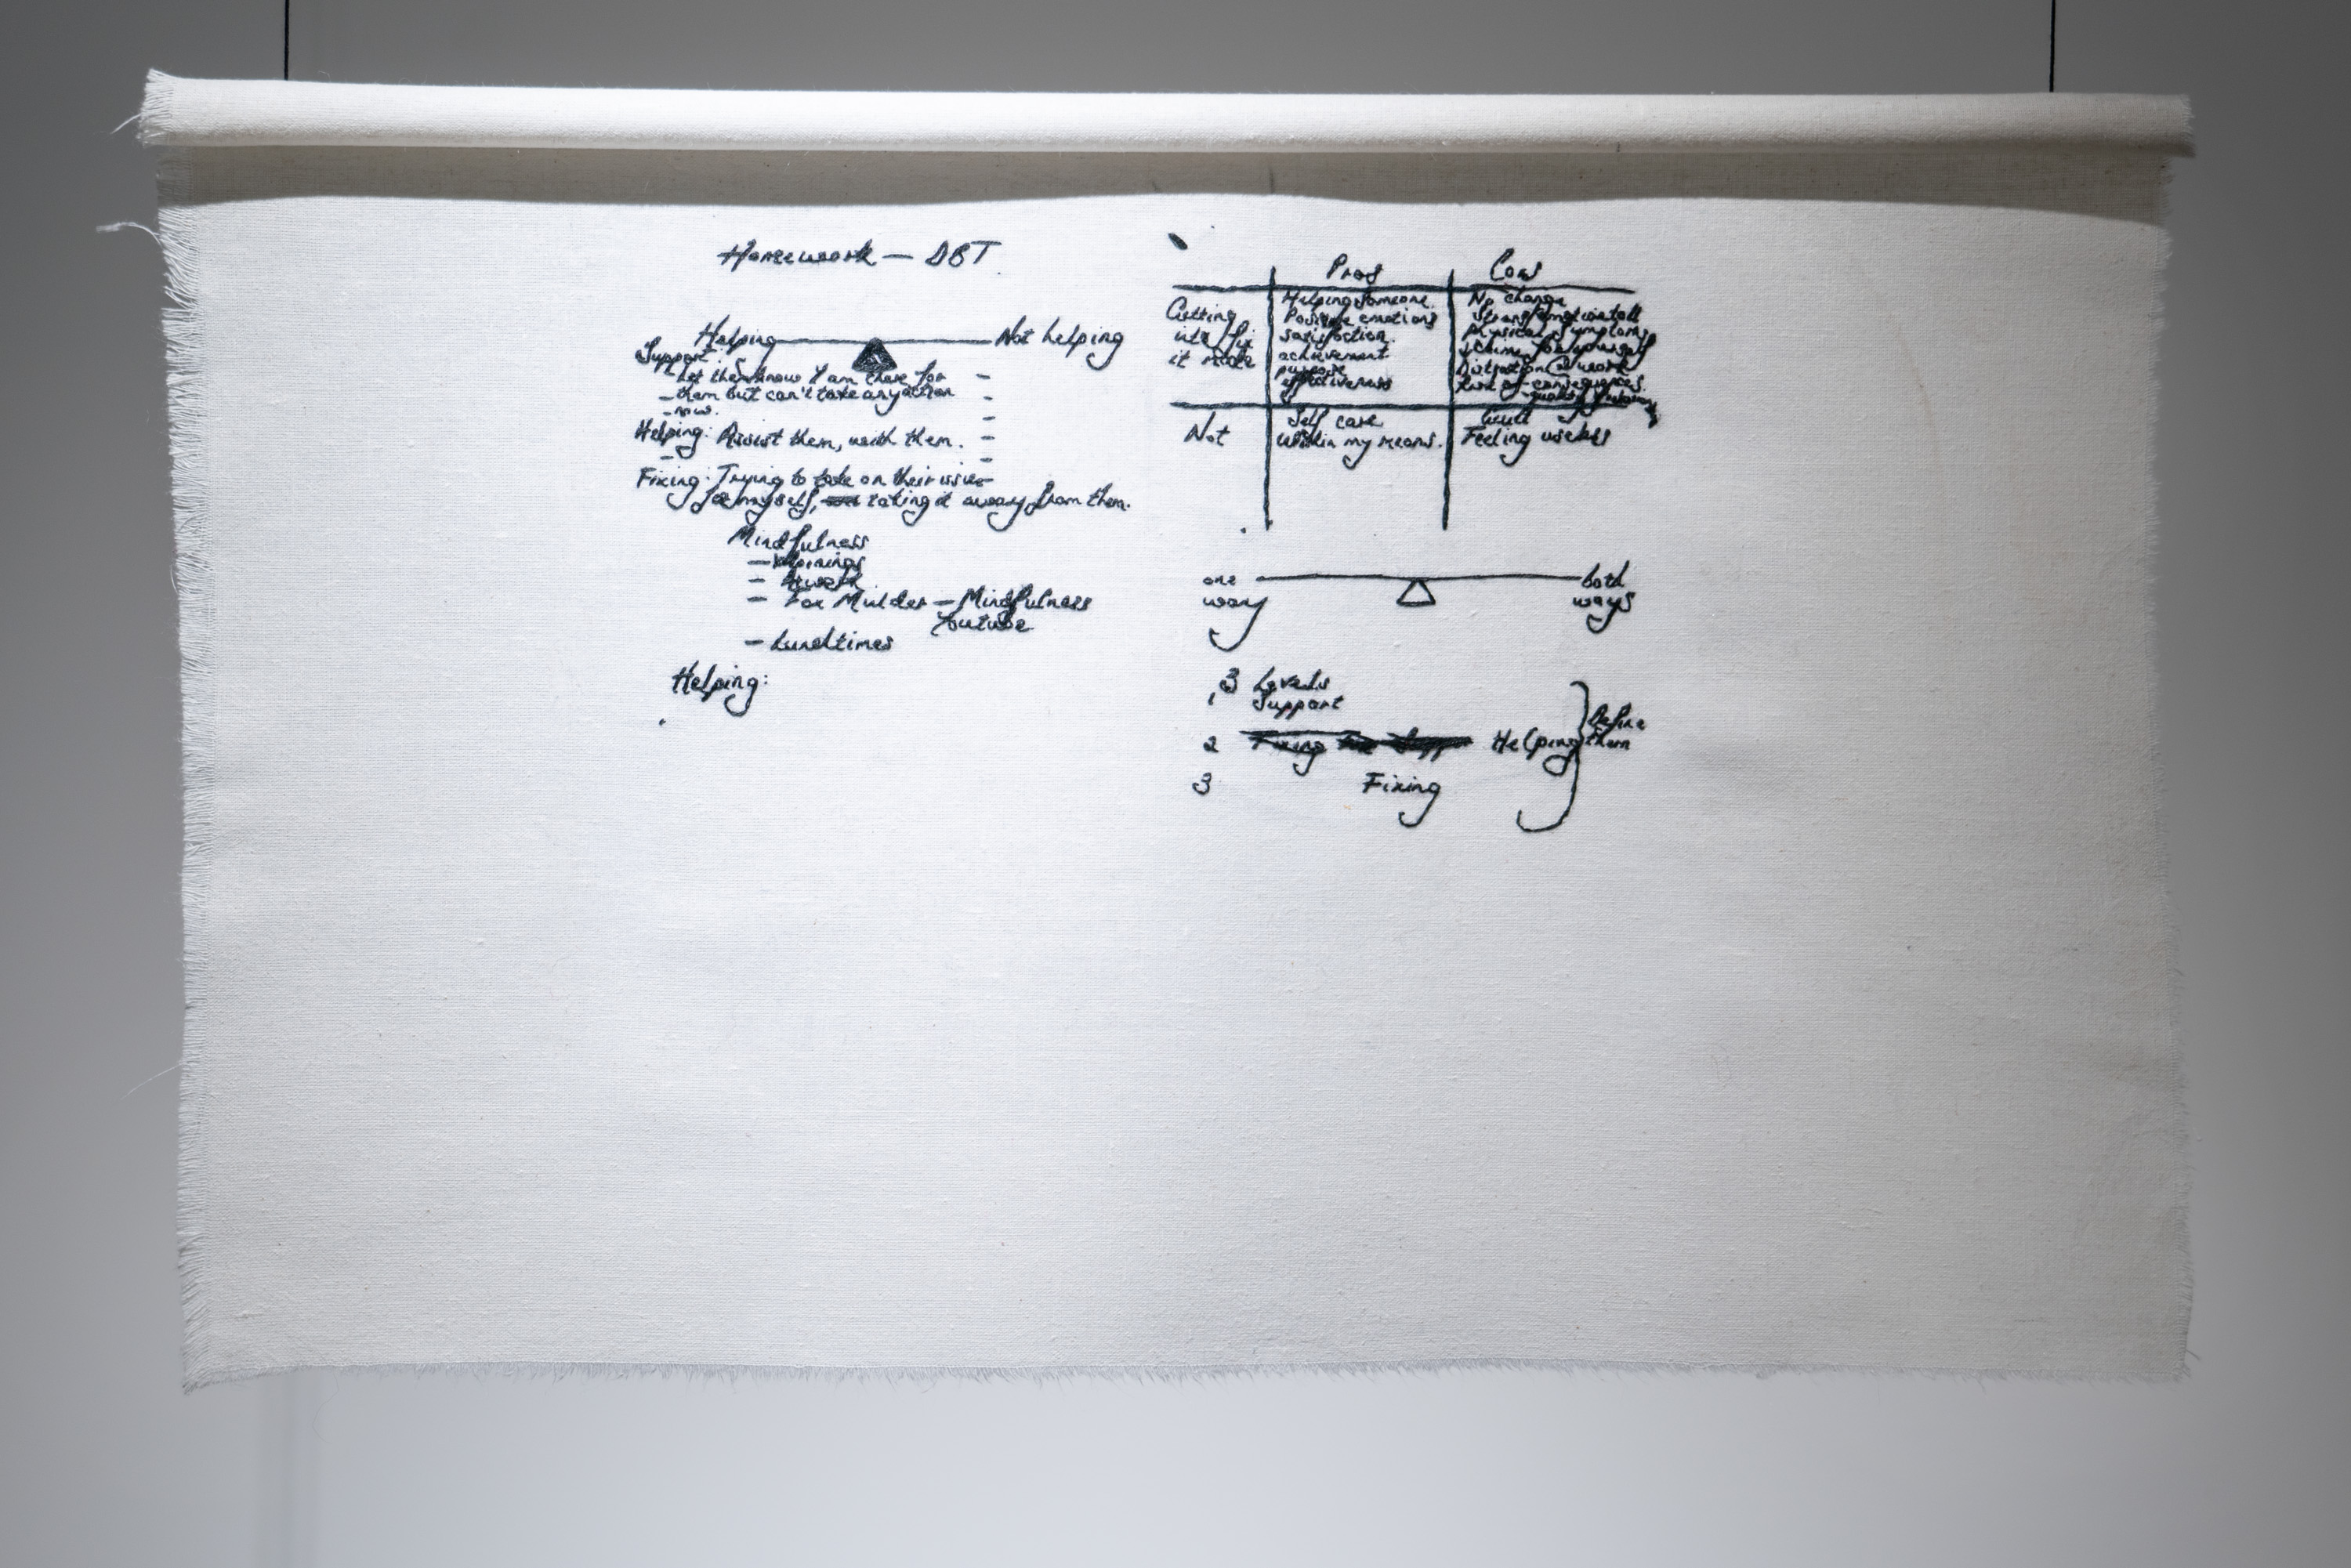 Homework — DBT
Helping Not helping
Support:
- Let them know I am there for
- them but can't take any action
- now.
Helping: Assist them, with them.
Fixing: Trying to take on their issue
for myself, taking it away from them.
Mindfulness
- Mornings
- Artwork
- For Mulder — Mindfulness
Youtube
- Lunchtimes
Helping:
Pros Cons
Getting
into fix
it mode
Helping someone
Positive emotions
satisfaction
achievement
purpose
effectiveness
No change
Stress/emotional toll
Physical symptoms
time for yourself
Distraction @ work
Risk of consequences
Not
Self care
Within my means.
Guilt
Feeling useless
one
way
both
ways
3 Levels
1 Support
2 Fixing Helping
3 Fixing
Define
them